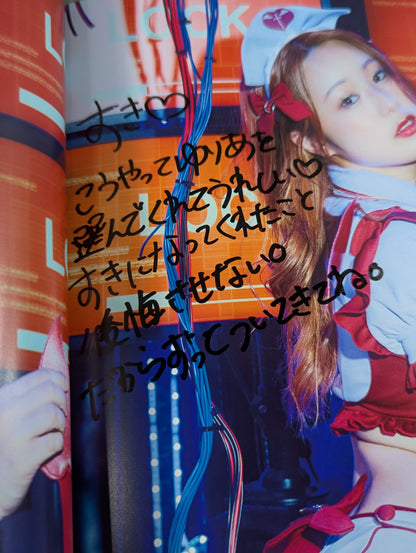 LOOK
すき♡
こうやってゆりあを
選んでくれてうれしい♡
すきになってくれたこと
後悔させない。
だからずっとついてきてね。